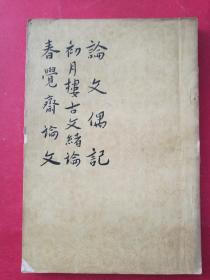 論文偶記
初月樓古文緒論
春覺齋論文